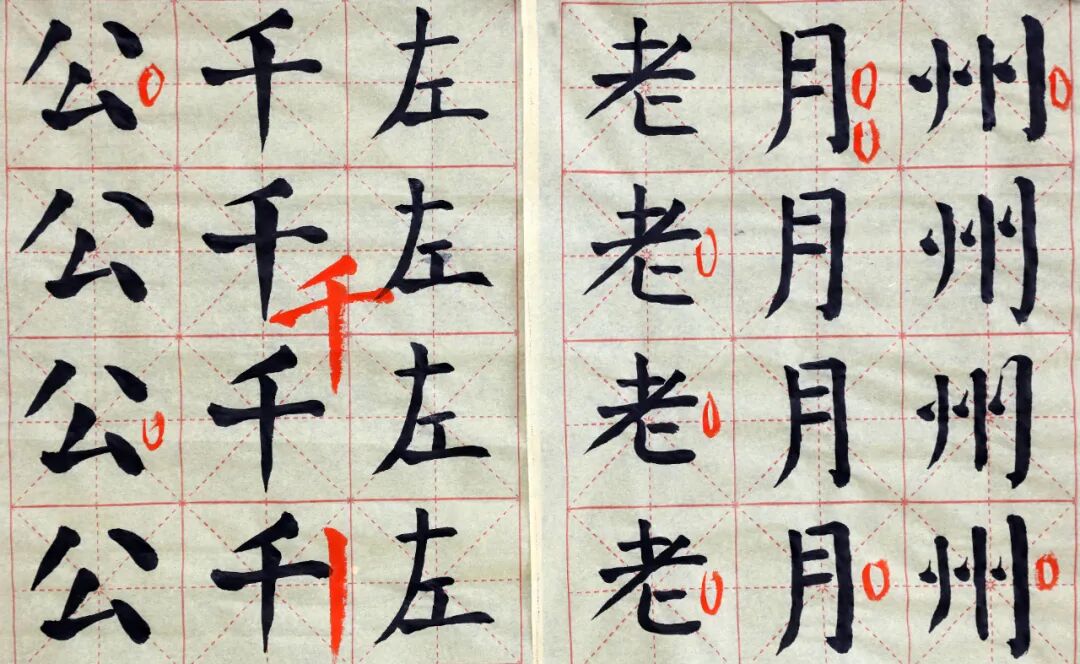 公千左 老月州
公千左 老月州
千
公千左 老月州
公千左 老月州